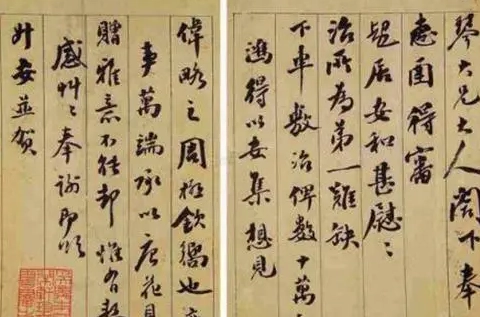 琴兄大人閣下奉
惠函得審
起居安和甚慰〻
治所為第一難缺
下車敷治俾數十萬
鴻得以安集想見
偉略之周極欽嚮也
事萬端承以唐花見
贈雅意不能卻惟有
感艸〻奉謝即頌
升安並賀